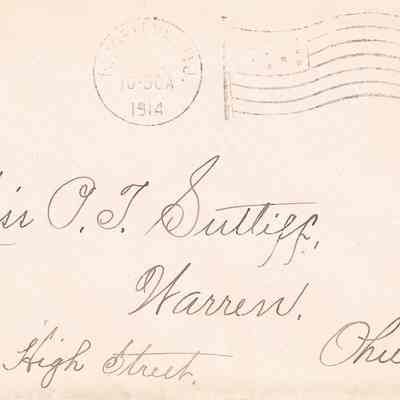 10-30A
1914
iss O. T. Sutliff,
Warren,
High Street.
Ohi